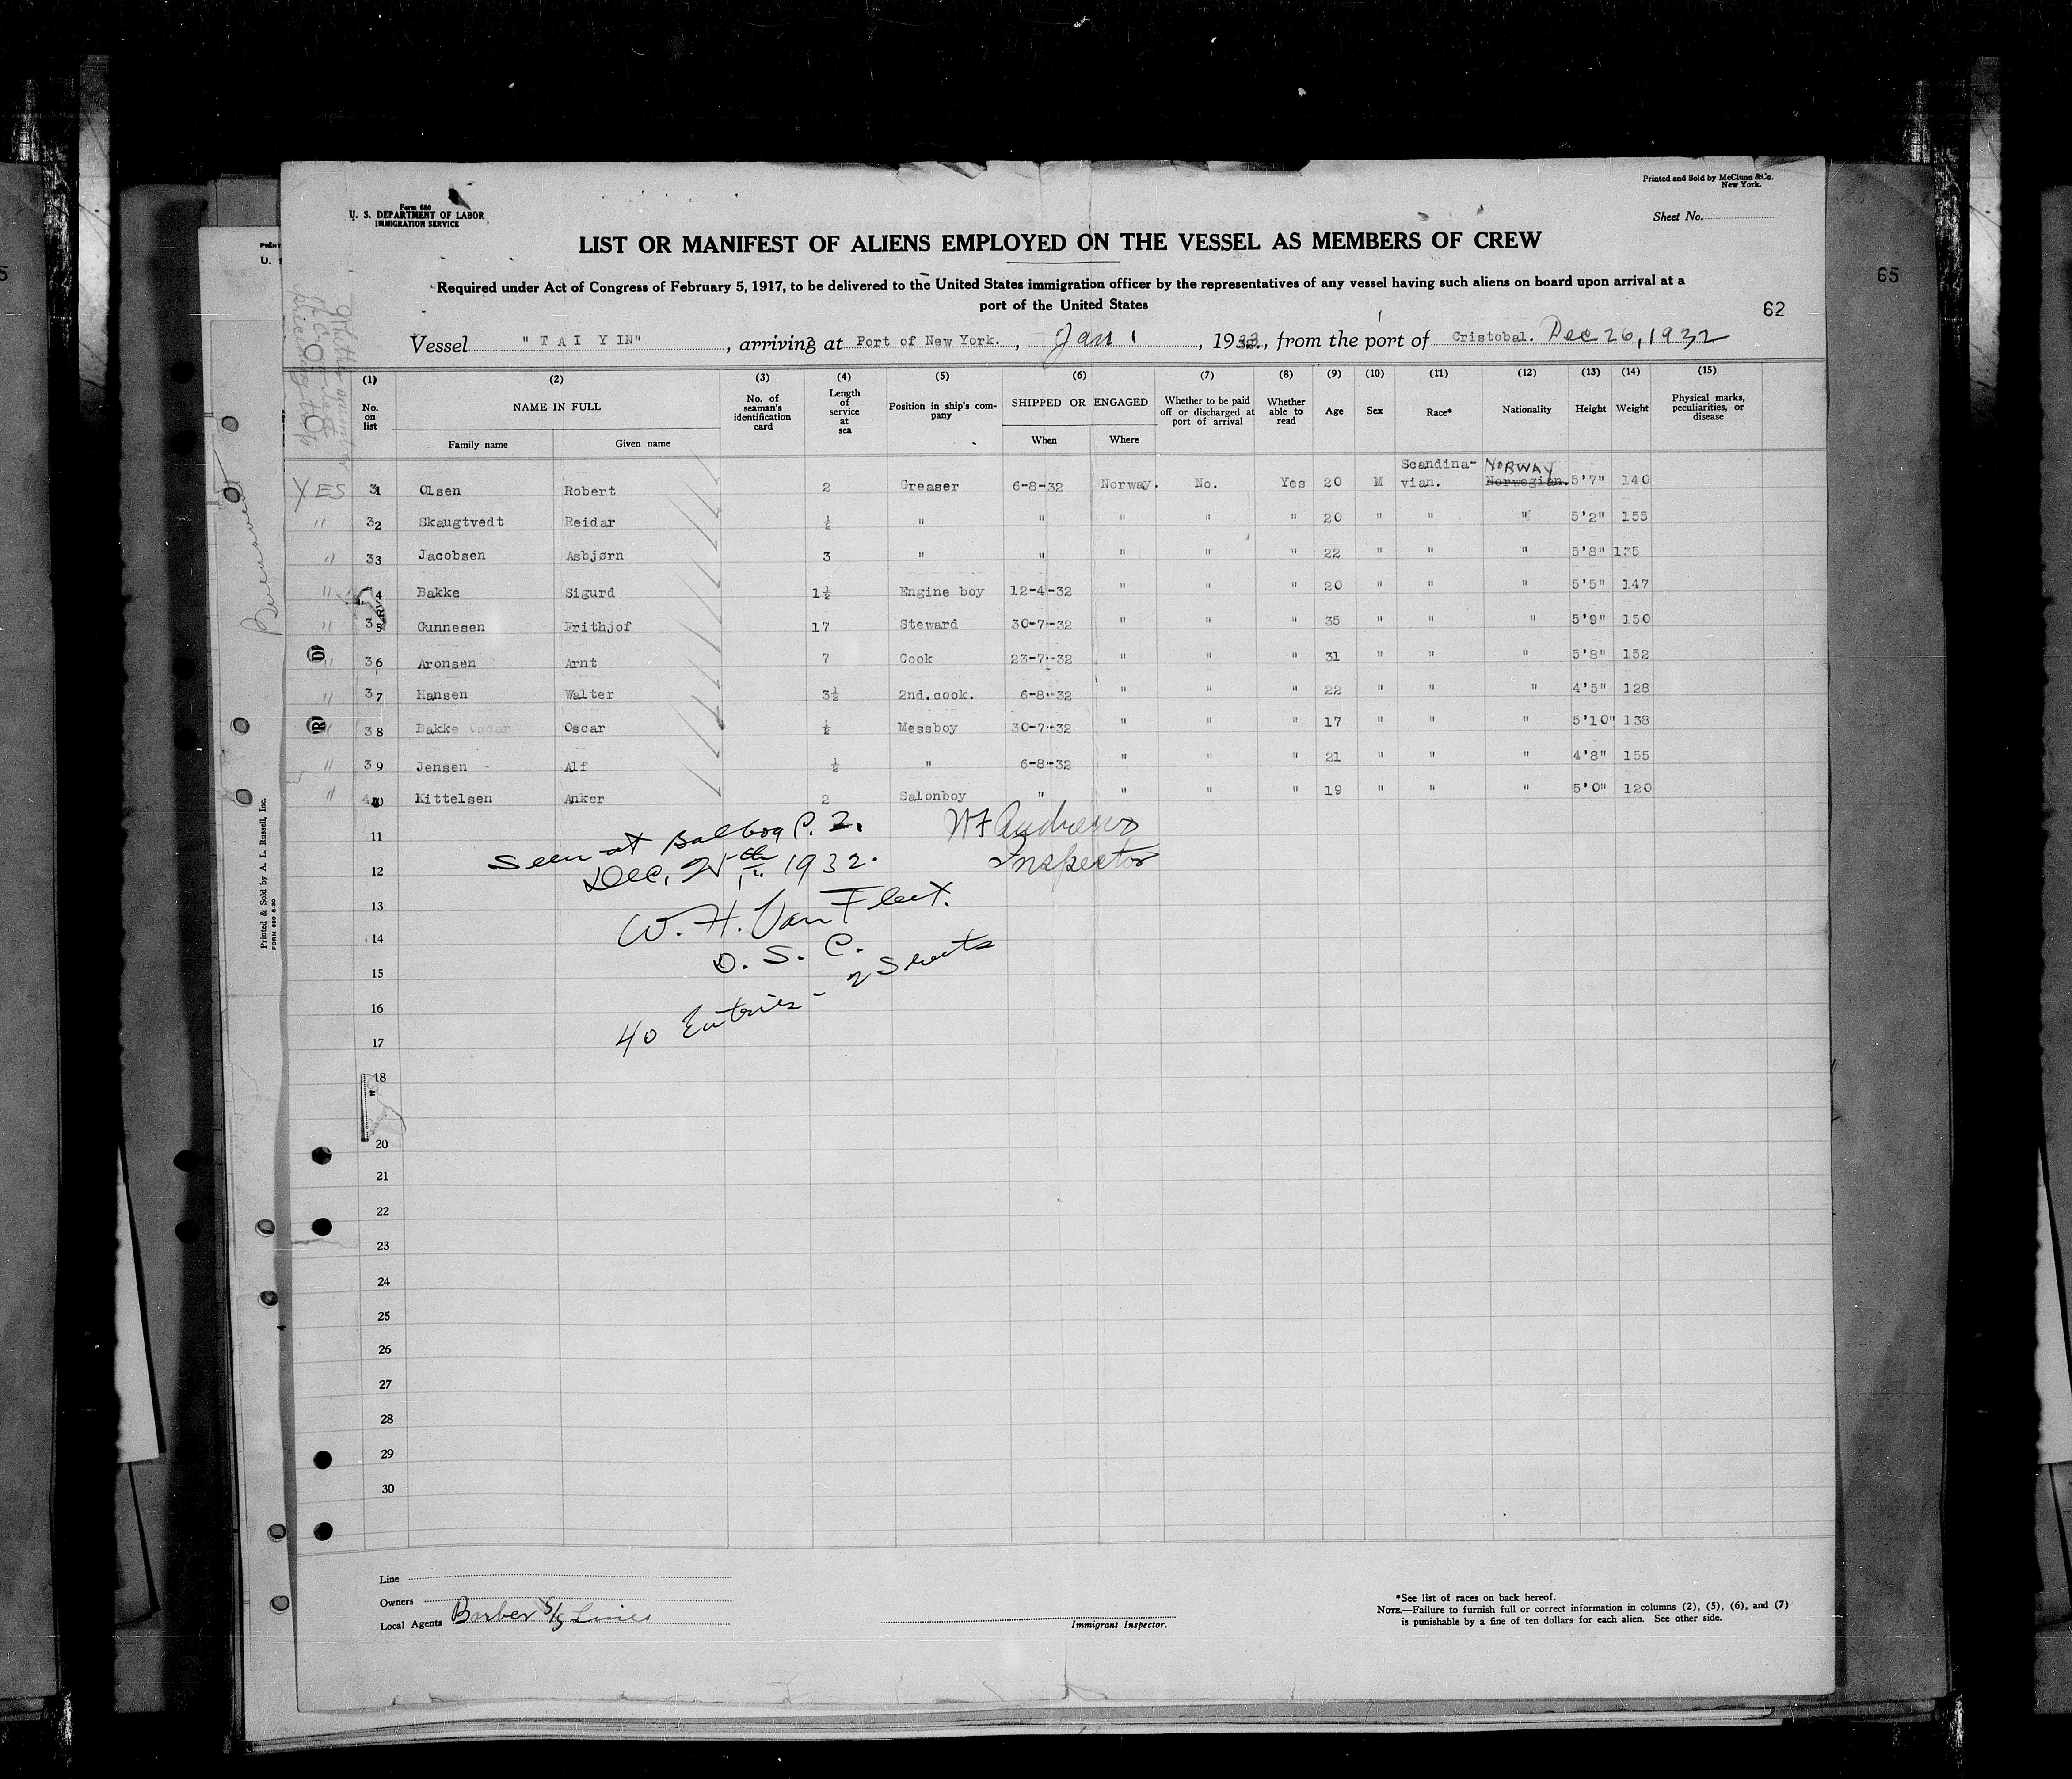 Form 680
U. S. DEPARTMENT OF LABOR
IMMIGRATION SERVICE
Printed and Sold by McClunn & Co.
New York.
Sheet No.
LIST OR MANIFEST OF ALIENS EMPLOYED ON THE VESSEL AS MEMBERS OF CREW
Required under Act of Congress of February 5, 1917, to be delivered to the United States immigration officer by the representatives of any vessel having such aliens on board upon arrival at a
port of the United States
65
62
Vessel " T A I Y IN" , arriving at Port of New York. , Jan 1 , 1933., from the port of Cristobal. Dec 26, 1932
(1) (2) (3) (4) (5) (6) (7) (8) (9) (10) (11) (12) (13) (14) (15)
No. on list NAME IN FULL Family name Given name No. of seaman's identification card Length of service at sea Position in ship's company SHIPPED OR ENGAGED When Where Whether to be paid off or discharged at port of arrival Whether able to read Age Sex Race* Nationality Height Weight Physical marks, peculiarities, or disease
YES 31 Olsen Robert 2 Greaser 6-8-32 Norway. No. Yes 20 M Scandina-vian. NORWAY Norwegian. 5'7" 140
" 32 Skaugtvedt Reidar ½ " " " " " 20 " " " 5'2" 155
" 33 Jacobsen Asbjørn 3 " " " " " 22 " " " 5'8" 135
" 4 Bakke Sigurd 1½ Engine boy 12-4-32 " " " 20 " " " 5'5" 147
" 35 Gunnesen Frithjof 17 Steward 30-7-32 " " " 35 " " " 5'9" 150
" 36 Aronsen Arnt 7 Cook 23-7-32 " " " 31 " " " 5'8" 152
" 37 Hansen Walter 3½ 2nd.cook. 6-8-32 " " " 22 " " " 4'5" 128
" 38 Bakke Oscar Oscar ½ Messboy 30-7-32 " " " 17 " " " 5'10" 138
" 39 Jensen Alf ½ " 6-8-32 " " " 21 " " " 4'8" 155
" 40 Kittelsen Anker 2 Salonboy " " " " 19 " " " 5'0" 120
11
12
13
14
15
16
17
18
20
21
22
23
24
25
26
27
28
29
30
Seen at Balboa C. Z.
Dec, 25th 1932.
W. H. Van Fleet.
D. S. C.
40 Entries - 2 Sheets
W F Andrews
Inspector
Printed & Sold by A. L. Russell, Inc.
FORM 689 8-30
Line
Owners
Local Agents Barber S/S Lines
Immigrant Inspector.
*See list of races on back hereof.
NOTE.—Failure to furnish full or correct information in columns (2), (5), (6), and (7)
is punishable by a fine of ten dollars for each alien. See other side.